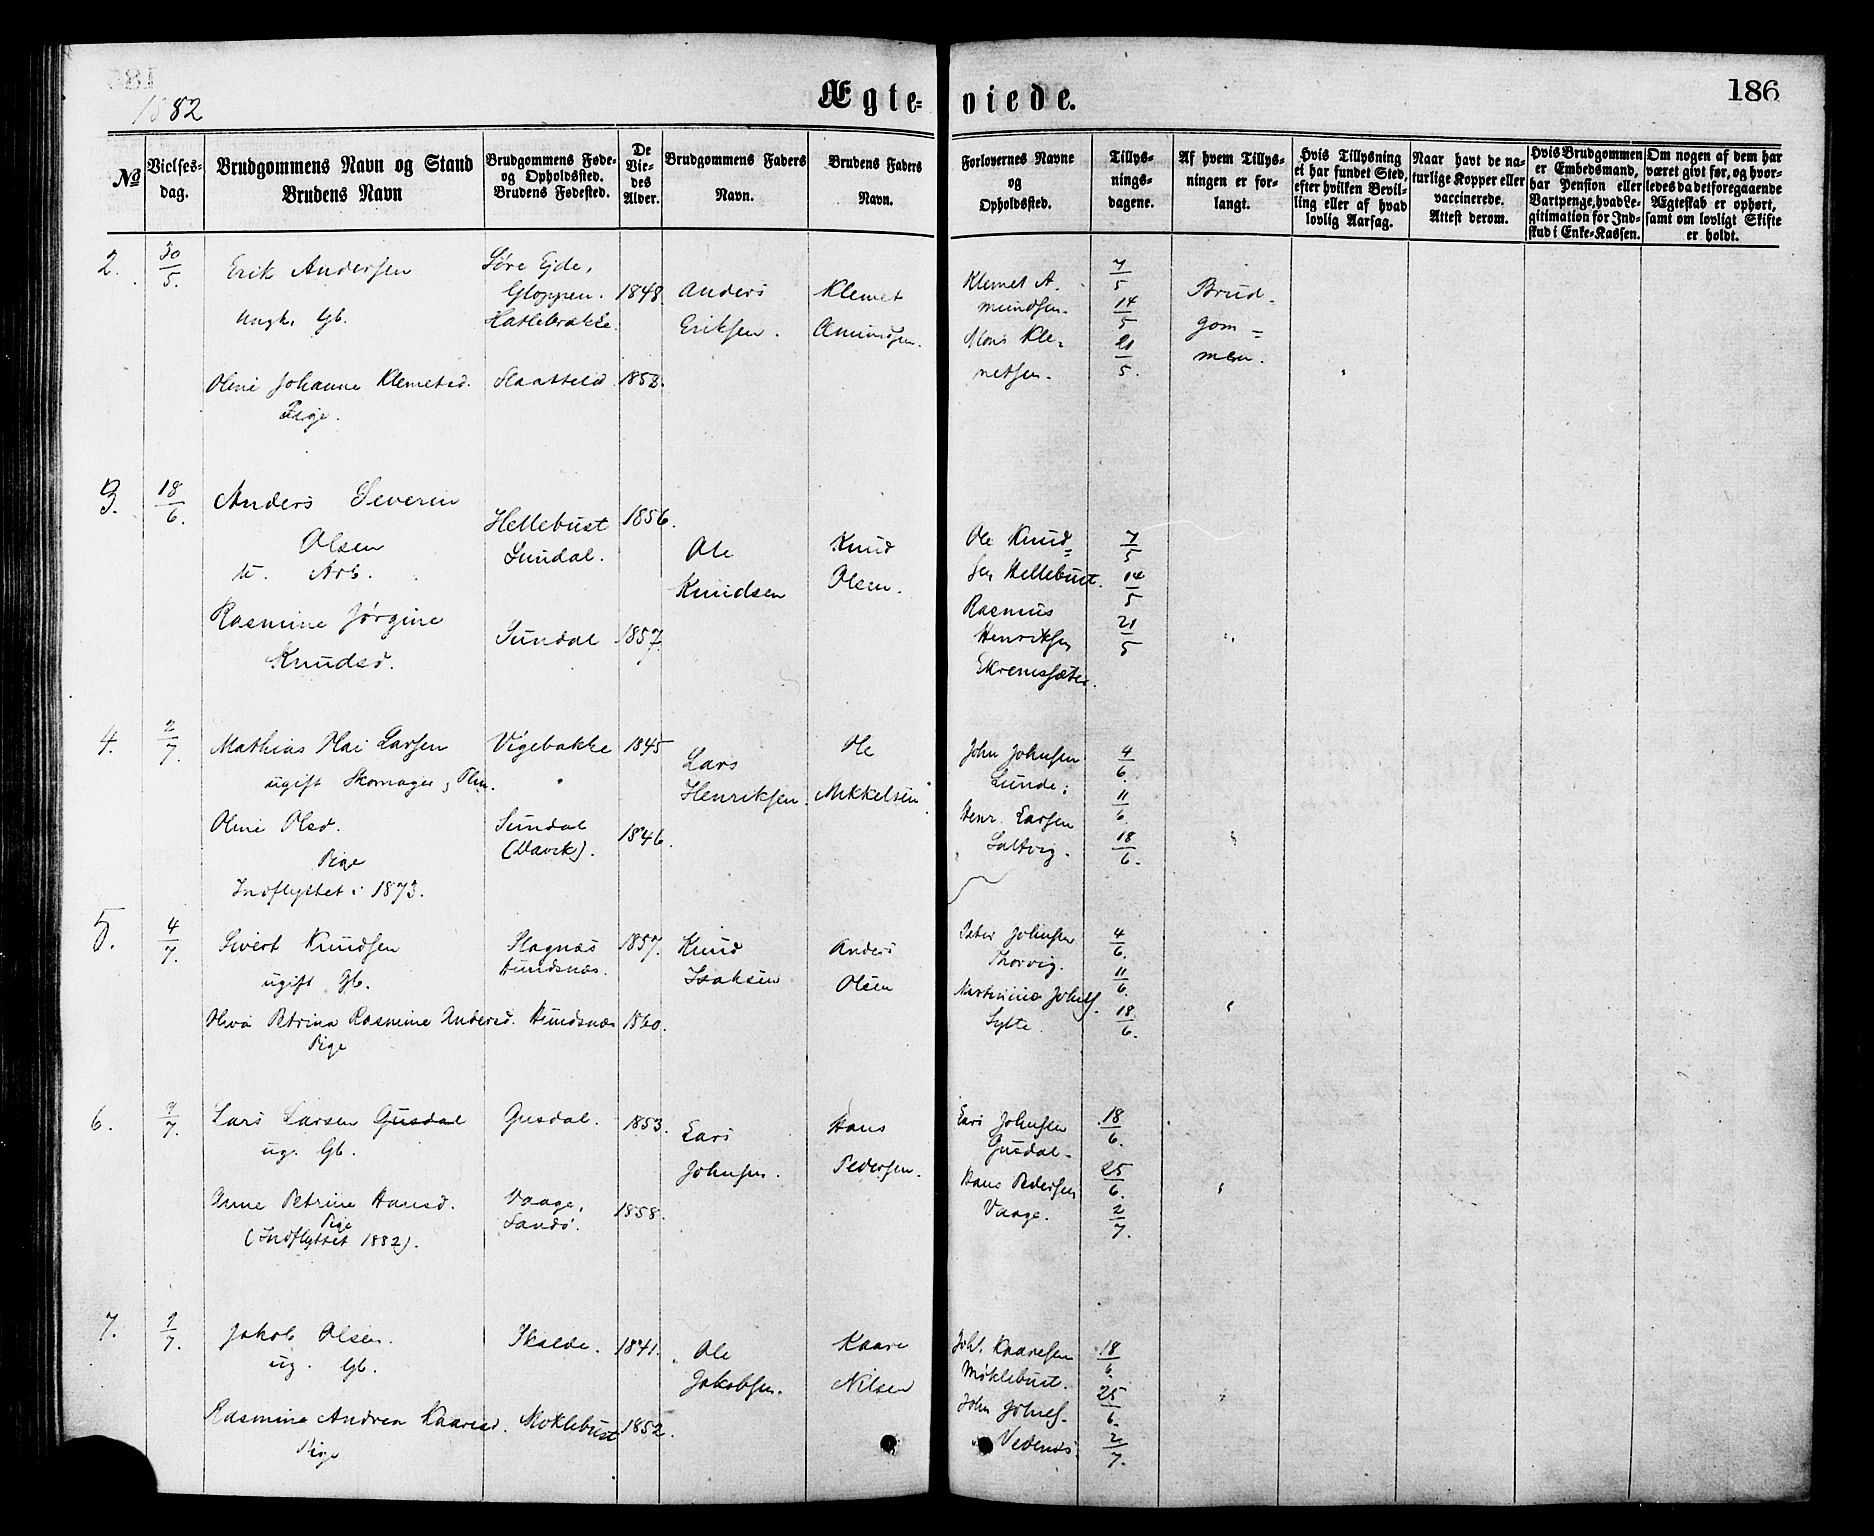 1882
Ægte-
viede.
186
№
Vielses-
dag.
Brudgommens Navn og Stand
Brudens Navn
Brudgommens Føde-
og Opholdssted.
Brudens Fødested.
De
Vie-
des
Alder.
Brudgommens Faders
Navn.
Brudens Faders
Navn.
Forlovernes Navne
og
Opholdssted.
Tillys-
nings-
dagene.
Af hvem Tillys-
ningen er for-
langt.
Hvis Tillysning
ei har fundet Sted,
efter hvilken Bevil-
ling eller af hvad
lovlig Aarsag.
Naar havt de na-
turlige Kopper eller
vaccinerede.
Attest derom.
Hvis Brudgommen
er Embedsmand,
har Pension eller
Vartpenge, hvad Le-
gitimation for Ind-
skud i Enke-Kassen.
Om nogen af dem har
været givt før, og hvor-
ledes da det foregaaende
Ægteskab er ophørt,
samt om lovligt Skifte
er holdt.
2.
30/5.
Erik Andersen
Ungk. Gb.
Søre Ejde,
Gloppen.
Hatlebrække.
1848
Anders
Eriksen.
Klemet
Amundsen.
Klemet A.
mundsen.
Mons Kle-
metsen.
7/5
14/5
21/5.
Brud-
gom=
men.
Oline Johanne Klemetsd.
Pige.
Slaattelid
1852.
3.
18/6.
Anders Severin
Olsen
u. Arb.
Hellebust
Sundal.
1856.
Ole
Knudsen
Knud
Olsen.
Ole Knud=
sen Hellebust.
Rasmus
Henriksen
Ekremsæter.
7/5
14/5
21/5
Rasmine Jørgine
Knudsd.
Sundal
1857.
4.
2/7.
Mathias Mai Larsen
ugift Skomager,
Vigebakke
1845
Lars
Henriksen.
Ole
Mikkelsen
John Johnsen
Lunde;
Henr. Larsen
Saltvig.
4/6.
11/6.
18/6.
Oline Olsd.
Pige
Indflyttet i 1873.
Sundal
(Davik).
1846.
5.
4/7.
Sivert Knudsen
ugift Gb.
Slagnæs
Hundsnæs.
1857.
Knud
Isaksen
Anders
Olsen
Peter Johnsen
Thorvig.
Martinius Johns.
Sylte.
4/6.
11/6.
18/6.
Petrina Rasmine Andersd.
Pige
Hundsnæs
1860.
6.
9/7.
Lars Larsen Gusdal
ug. Gb.
Gusdal.
1853.
Lars
Johnsen.
Hans
Pedersen.
Lars Johnsen
Gusdal.
Hans Pedersen
Vaage.
18/6.
25/6.
2/7.
Anne Petrine Hansd.
Pige
(Indflyttet 1882).
Vaage,
Sandø.
1858.
7.
9/7.
Jakob Olsen.
ug. Gb.
1841.
Ole
Jakobsen.
Kaare
Nilsen
Joh. Kaaresen
Møklebust.
John Johns.
Vedenæs.
18/6.
25/6.
2/7.
Rasmine Andrea Kaaresd.
Pige
Moklebust
1852.